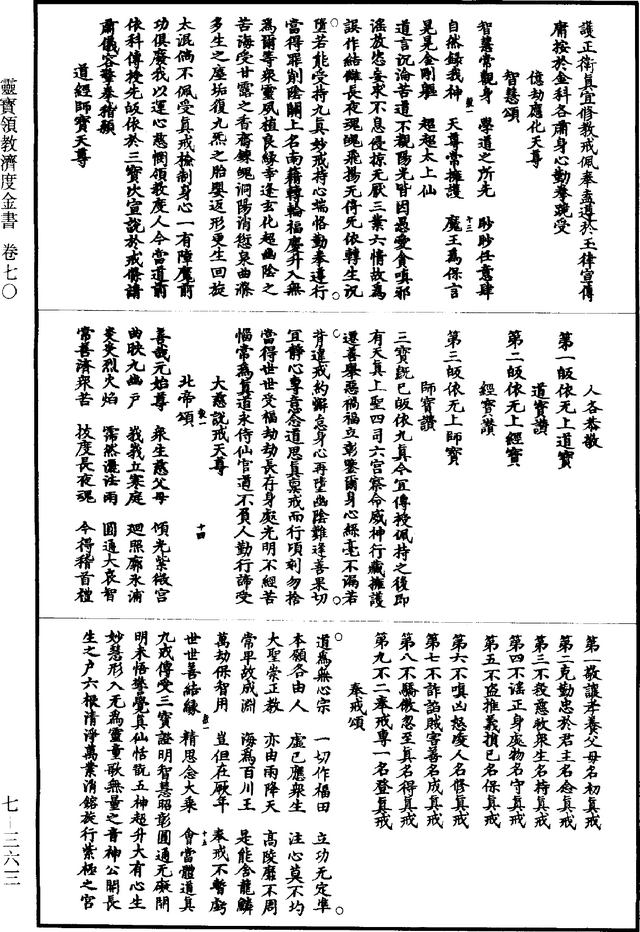 靈寶領教濟度金書 卷七〇
七－三六一三
護正衛真宜修教戒佩奉盂遵於玉律宣傳
膺按於金科各肅身心勤拳跪受
億劫應化天尊
智慧頌
智慧常觀身 學道之所先 眇眇任意肆
自然錄我神 天尊常擁護 魔王為保言
晃晃金剛軀 超超太上仙
道言汎淪苦道不覩陽光皆因恚愛貪嗔邪
淫放恣妄求不息侵掠无厭三業六情故為
誤作結讎長夜魂魄飛揚无停死依轉生沉
墮若能受持九真妙戒持心端恪勤奉遵行
當得罪削陰關上名南籍轉輪福慶升入無
為爾等衆靈夙植良緣幸逢玄化超幽陰之
苦海受甘露之香齋鍊魄洞陽消愆泉曲滌
多生之塵垢復九炁之胎嬰返形更生回旋
太混倘不佩受真戒檢制身心一有障魔前
功俱廢我以運心慈憫領教度人今當道前
依科傳授先皈依於三寶次宣說於戒條請
肅儀容聲奉稽顙
道經師寶天尊
人各恭敬
第一皈依无上道寶
道寶讚
第二皈依无上經寶
經寶讚
第三皈依无上師寶
師寶讚
三寶既已皈依九真今宜傳授佩持之後即
有天真上聖四司六宮察命威神行藏擁護
還善舉惡禍福立彰鑒爾身心絲毫不漏若
背違戒約懈怠身心再墮幽陰難逢善果切
宜靜心專意念道思真稟戒而行頃刻勿捨
當得世世受福劫劫長存身處光明不經苦
惱常為真道永侍仙官道不負人勤行諦受
大慈說戒天尊
北帝頌
善哉元始尊 衆生慈父母 傾光紫微宮
曲映九幽戶 我我立寒庭 廻照廓氷浦
炎炎烈火焰 霈然灑法雨 圓通大哀智
常善濟衆苦 拔度長夜魂 今得稽首禮
第一敬讓孝養父母名初真戒
第二克勤忠於君王名念真戒
第三不殺慈救衆生名持真戒
第四不淫正身處物名守真戒
第五不盜推義損己名保真戒
第六不嗔凶怒凌人名修真戒
第七不詐諂賊害善名成真戒
第八不驕傲忽至真名得真戒
第九不二奉戒專一名登真戒
奉戒頌
道為無心宗 一切作福田 立功无定準
本願各由人 虛己應衆生 注心莫不均
大聖崇正教 亦由雨降天 高陵靡不周
常卑故成淵 海為百川王 是能舍龍鱗
萬劫保智用 豈但在厥年 奉戒不暫虧
世世善結緣 精思念大乘 會當體道真
九戒傳受三寶證明智慧昭彰圓通无礙開
明未悟攀覺真仙恬翫五神超升大有心生
妙慧形入无為靈童歌無量之音神公開長
生之戶六根清淨萬業消鎔旋行紫極之宮